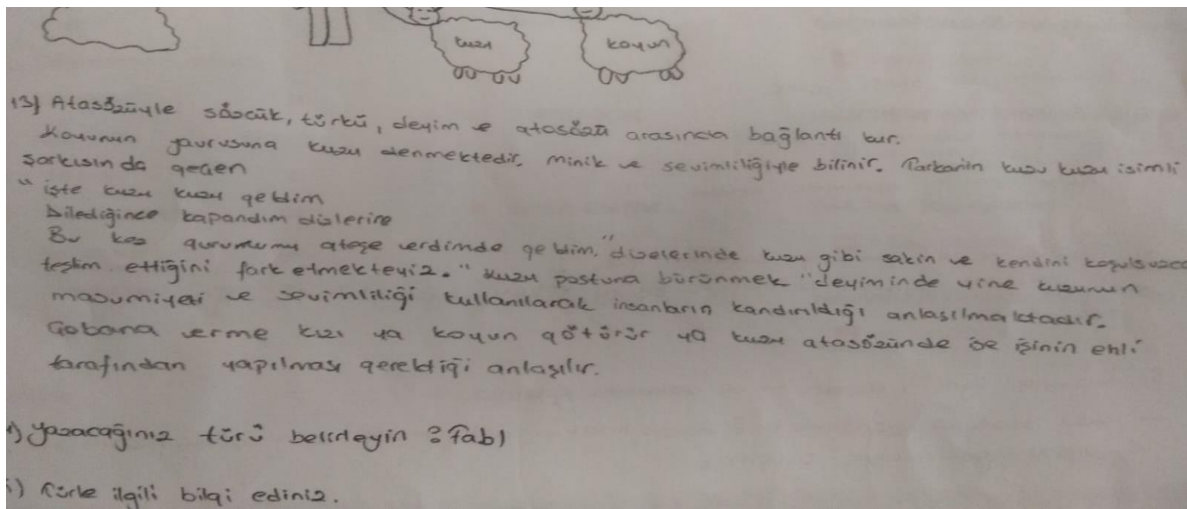 kuzu
koyun
13) Atasözüyle sözcük, türkü, deyim ve atasözü arasında bağlantı kur.
Koyunun yavrusuna kuzu denmektedir. Minik ve sevimliliğiyle bilinir. Tarkan'ın kuzu kuzu isimli
şarkısında geçen
"işte kuzu kuzu geldim
Dilediğince kapandım dizlerine
Bu kez gururumu ateşe verdimde geldim." dizelerinde kuzu gibi sakin ve kendini koşulsuzca
teslim ettiğini fark etmekteyiz. "kuzu postuna bürünmek" deyiminde yine kuzunun
masumiyeti ve sevimliliği kullanılarak insanların kandırıldığı anlaşılmaktadır.
Çobana verme kızı ya koyun götürür ya kuzu atasözünde ise işinin ehli
tarafından yapılması gerektiği anlaşılır.
) Yazacağınız türü belirleyin : Fabl
) Türle ilgili bilgi ediniz.